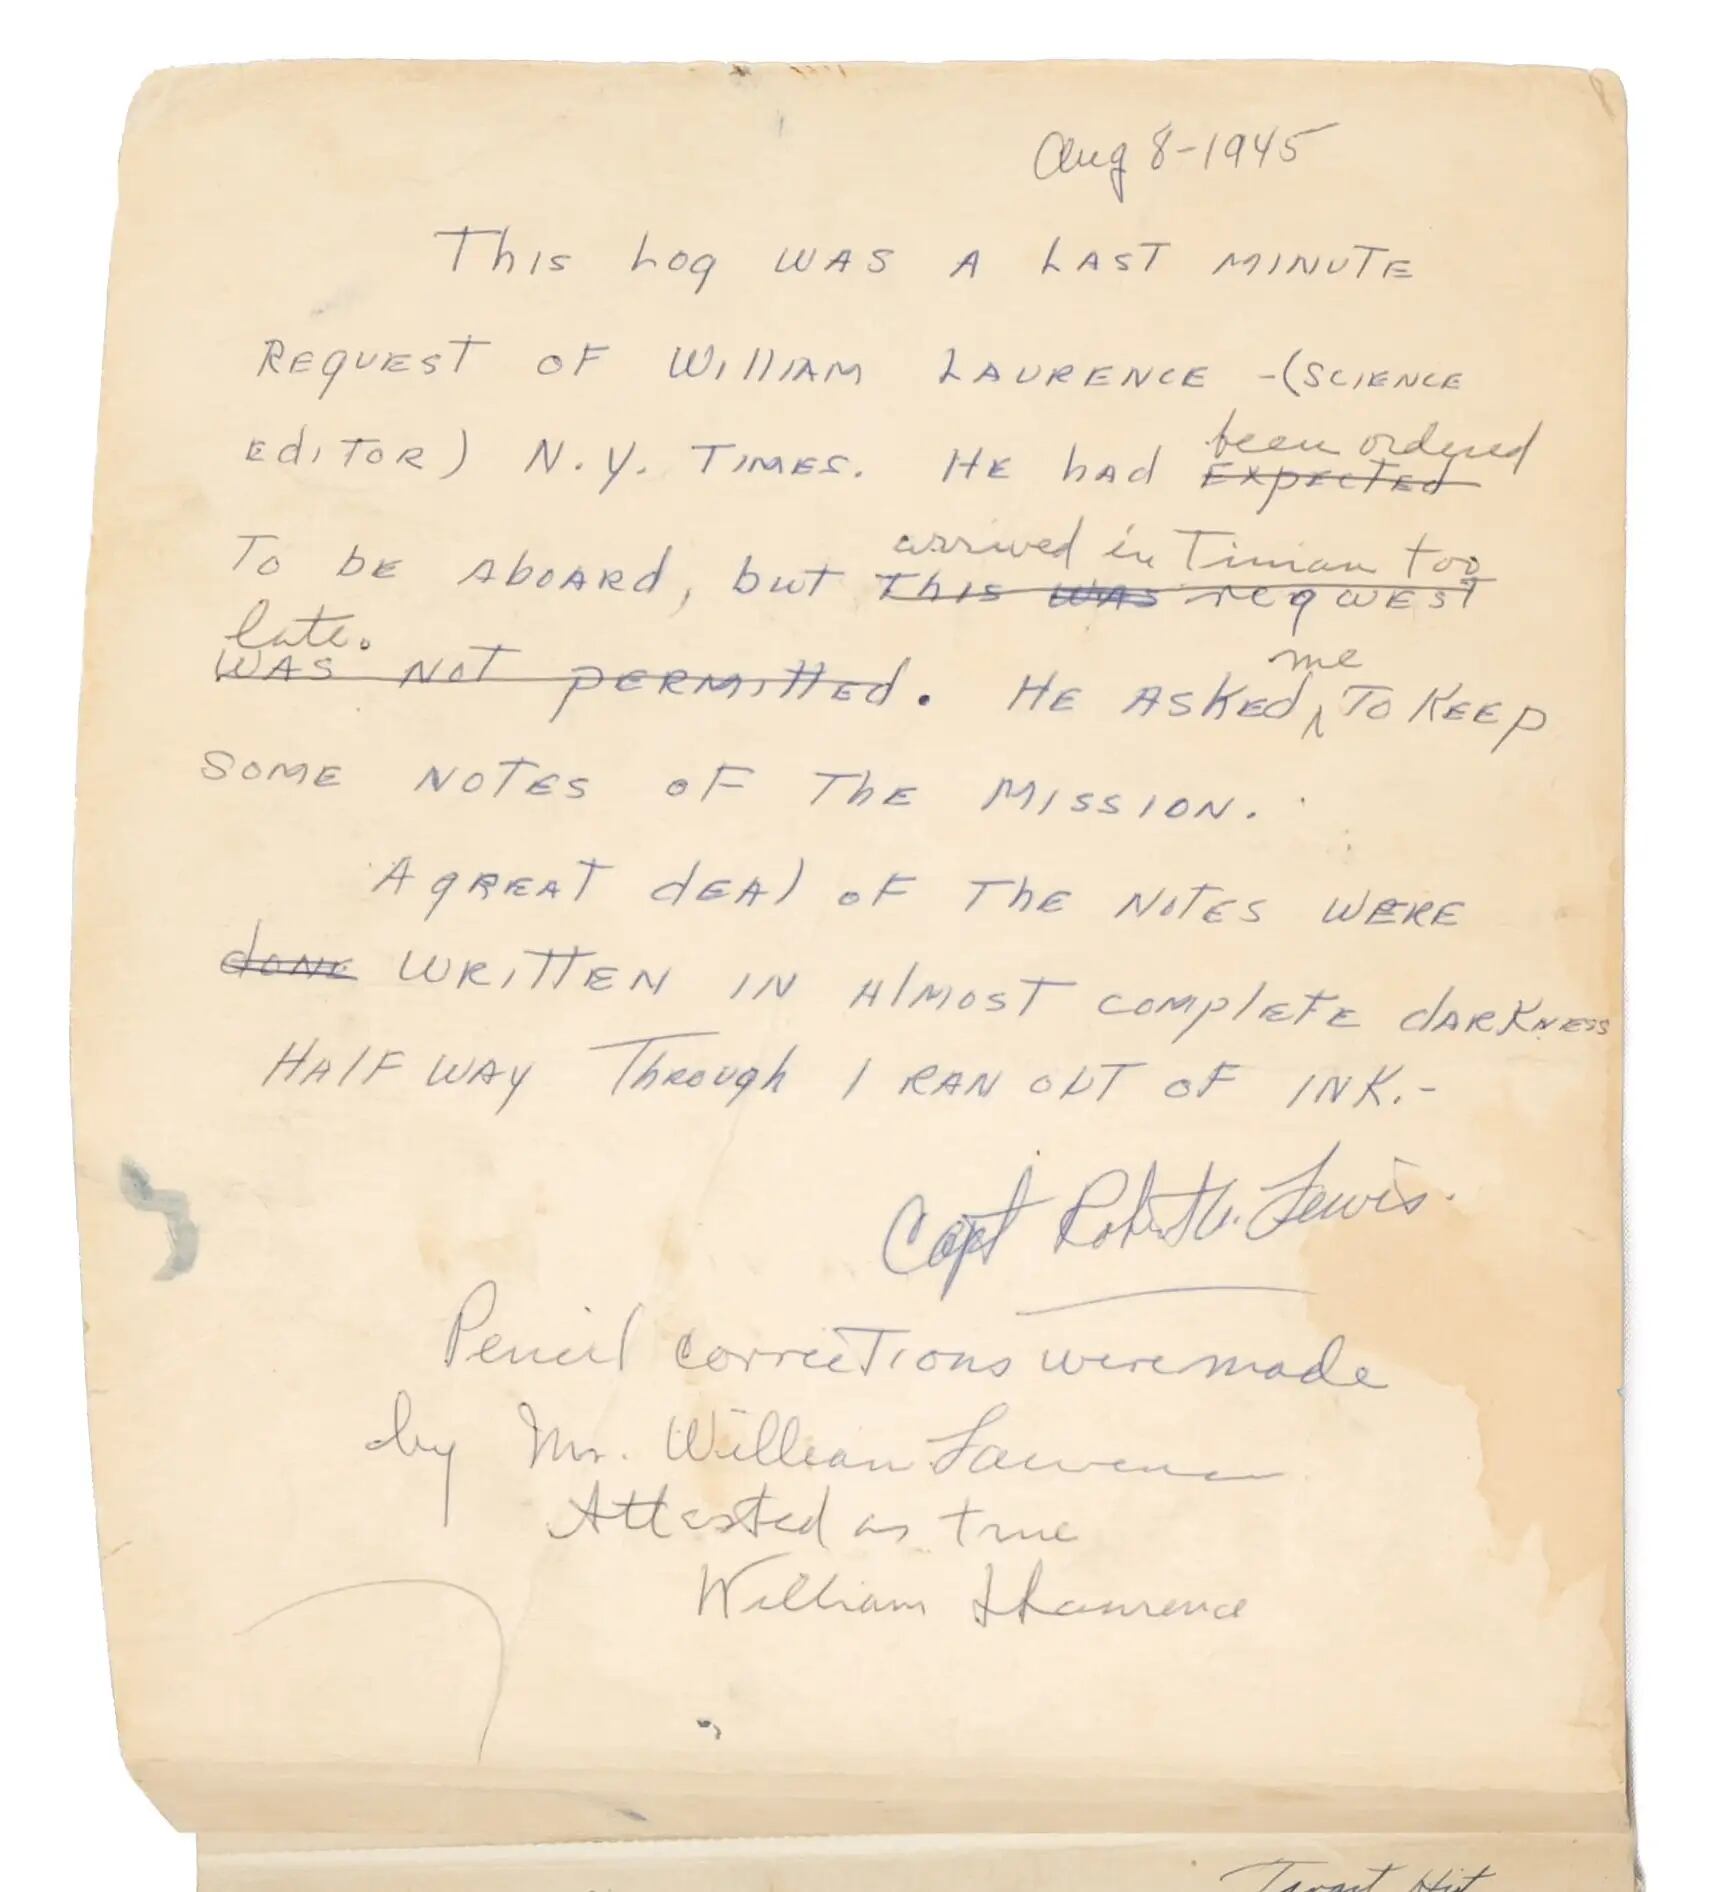 Aug 8-1945
This Log was a last minute
request of William Laurence - (science
been ordered
editor) N.Y. Times. He had expected
arrived in Tinian too
to be aboard, but this was request
late.
was not permitted. He asked me to keep
some notes of the mission.
A great deal of the notes were
done written in almost complete darkness
Half way through I ran out of ink.-
Capt Robert A. Lewis.
Pencil corrections were made
by Mr. William Laurence
Attested as true
William L Laurence
Target Hit